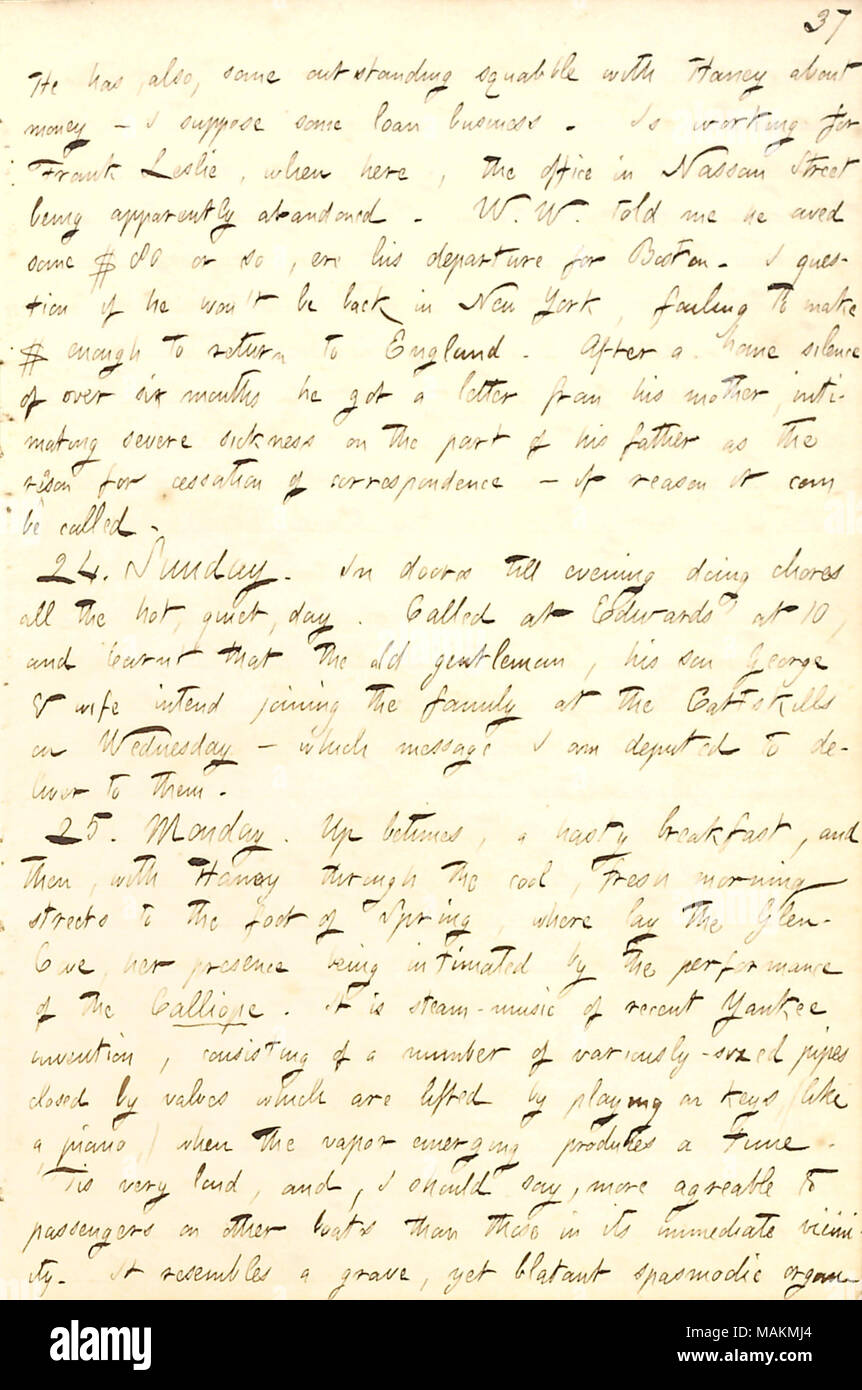 37
He has, also, some outstanding squabble with Haney about
money — I suppose some loan business. Is working for
Frank Leslie, when here, the office in Nassau Street
being apparently abandoned. W. W. told me he owed
some $80 or so, ere his departure for Boston. I ques-
tion if he won't be back in New York, failing to make
$ enough to return to England. After a home silence
of over six months he got a letter from his mother, inti-
mating severe sickness on the part of his father as the
reson for cessation of correspondence — if reason it can
be called.
24. Sunday. In doors till evening doing chores
all the hot, quiet, day. Called at Edwards' at 10,
and learnt that the old gentleman, his son George
& wife intend joining the family at the Cattskills
on Wednesday — which message I am deputed to de-
liver to them.
25. Monday. Up betimes, a hasty breakfast, and
then, with Haney through the cool, fresh morning
streets to the foot of Spring, where lay the Glen-
Cove, her presence being intimated by the performance
of the Calliope. It is steam-music of recent Yankee
invention, consisting of a number of variously-sized pipes
closed by valves which are lifted by playing on keys (like
a piano,) when the vapor emerging produces a tune.
'Tis very loud, and, I should say, more agreable to
passengers on other boats than those in its immediate vicini-
ity. It resembles a grave, yet blatant spasmodic organ
alamy
Image ID: MAKMJ4
www.alamy.com